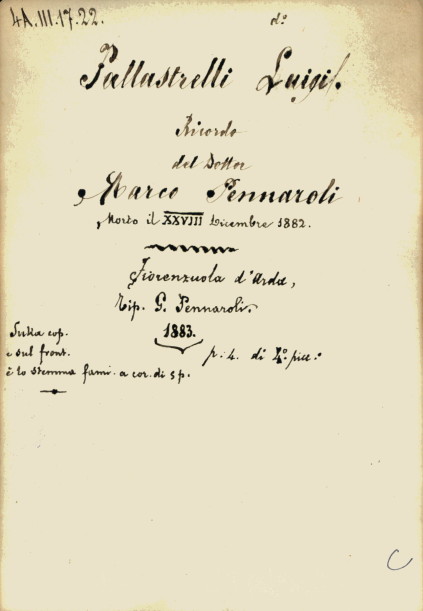 4A.III.17.22.
d.º
Pallastrelli Luigi.
Ricordo
del Dottor
Marco Pennaroli
Morto il XXVIII Dicembre 1882.
Fiorenzuola d'Arda,
Tip. G. Pennaroli.
1883.
p. 4. di 4.º picc.º
Sulla cop.
e sul front.
è lo stemma fami. a cor. di sp.
C